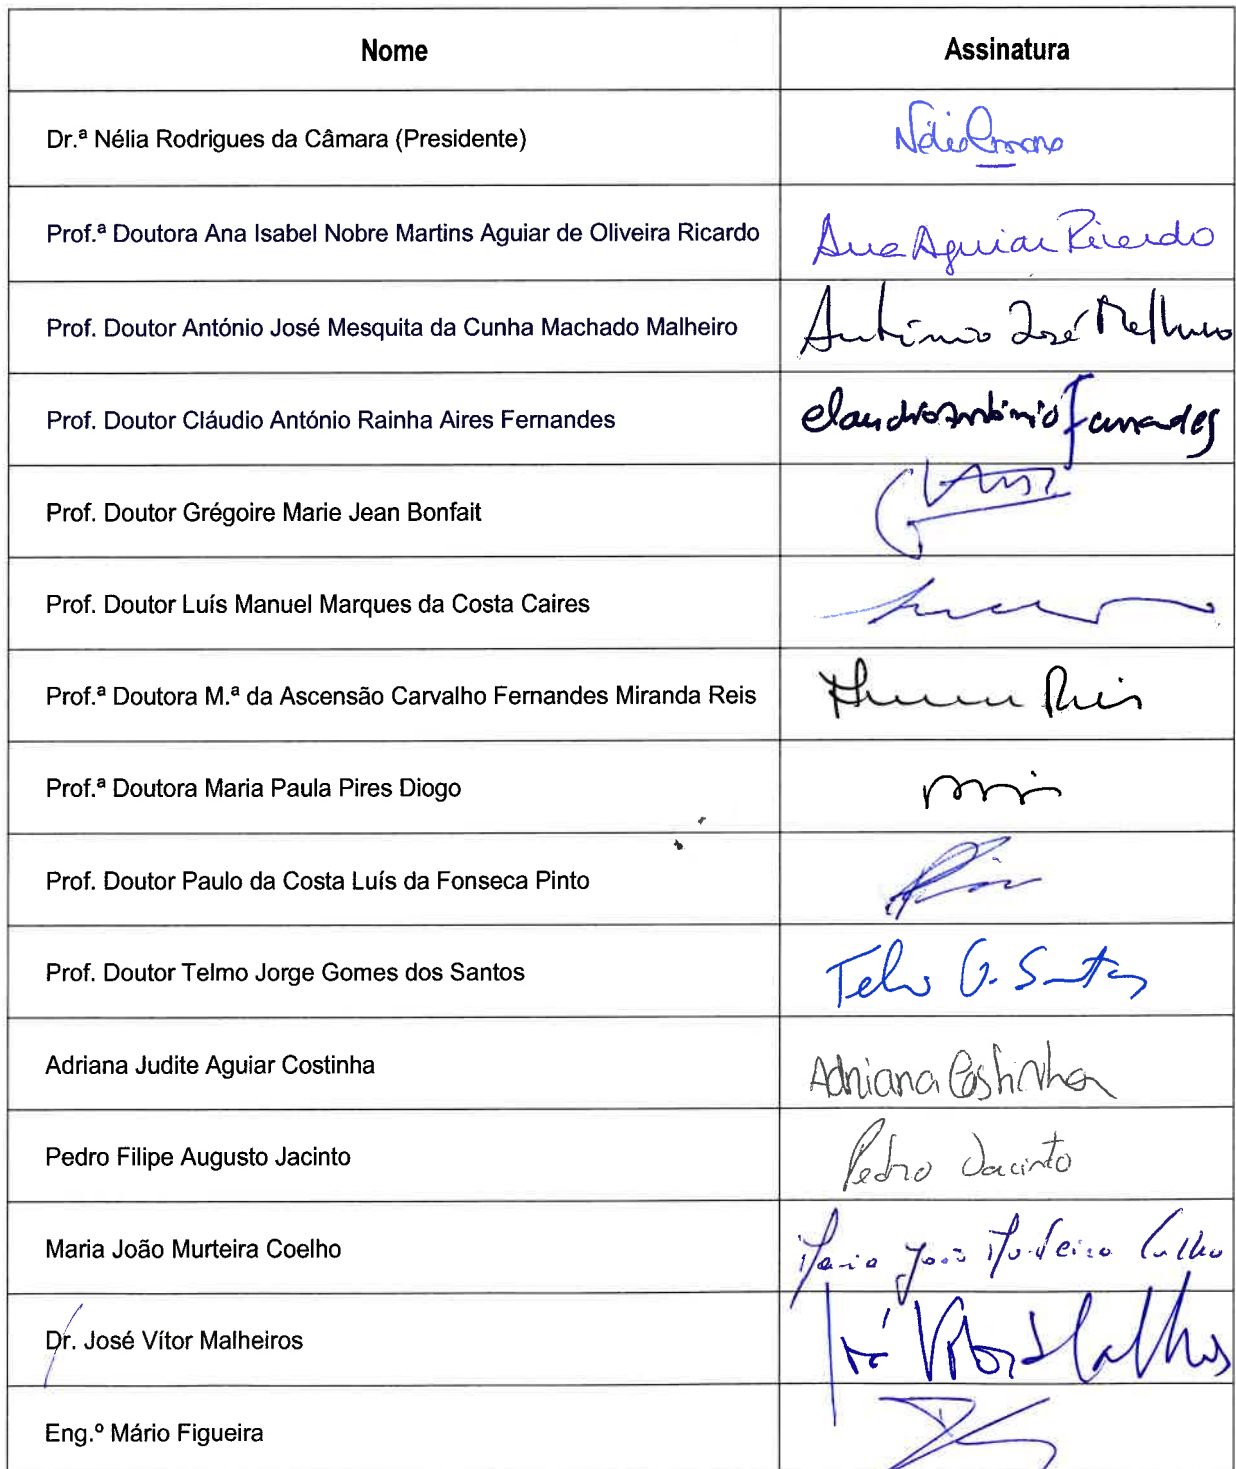 Nome Assinatura
Dr.ª Nélia Rodrigues da Câmara (Presidente)
Prof.ª Doutora Ana Isabel Nobre Martins Aguiar de Oliveira Ricardo Ana Aguiar Ricardo
Prof. Doutor António José Mesquita da Cunha Machado Malheiro António José Malheiro
Prof. Doutor Cláudio António Rainha Aires Fernandes Claudio António Fernandes
Prof. Doutor Grégoire Marie Jean Bonfait
Prof. Doutor Luís Manuel Marques da Costa Caires
Prof.ª Doutora M.ª da Ascensão Carvalho Fernandes Miranda Reis Reis
Prof.ª Doutora Maria Paula Pires Diogo
Prof. Doutor Paulo da Costa Luís da Fonseca Pinto
Prof. Doutor Telmo Jorge Gomes dos Santos Telmo G. Santos
Adriana Judite Aguiar Costinha Adriana Costinha
Pedro Filipe Augusto Jacinto Pedro Jacinto
Maria João Murteira Coelho Maria João Murteira Coelho
Dr. José Vítor Malheiros José Vítor Malheiros
Eng.º Mário Figueira